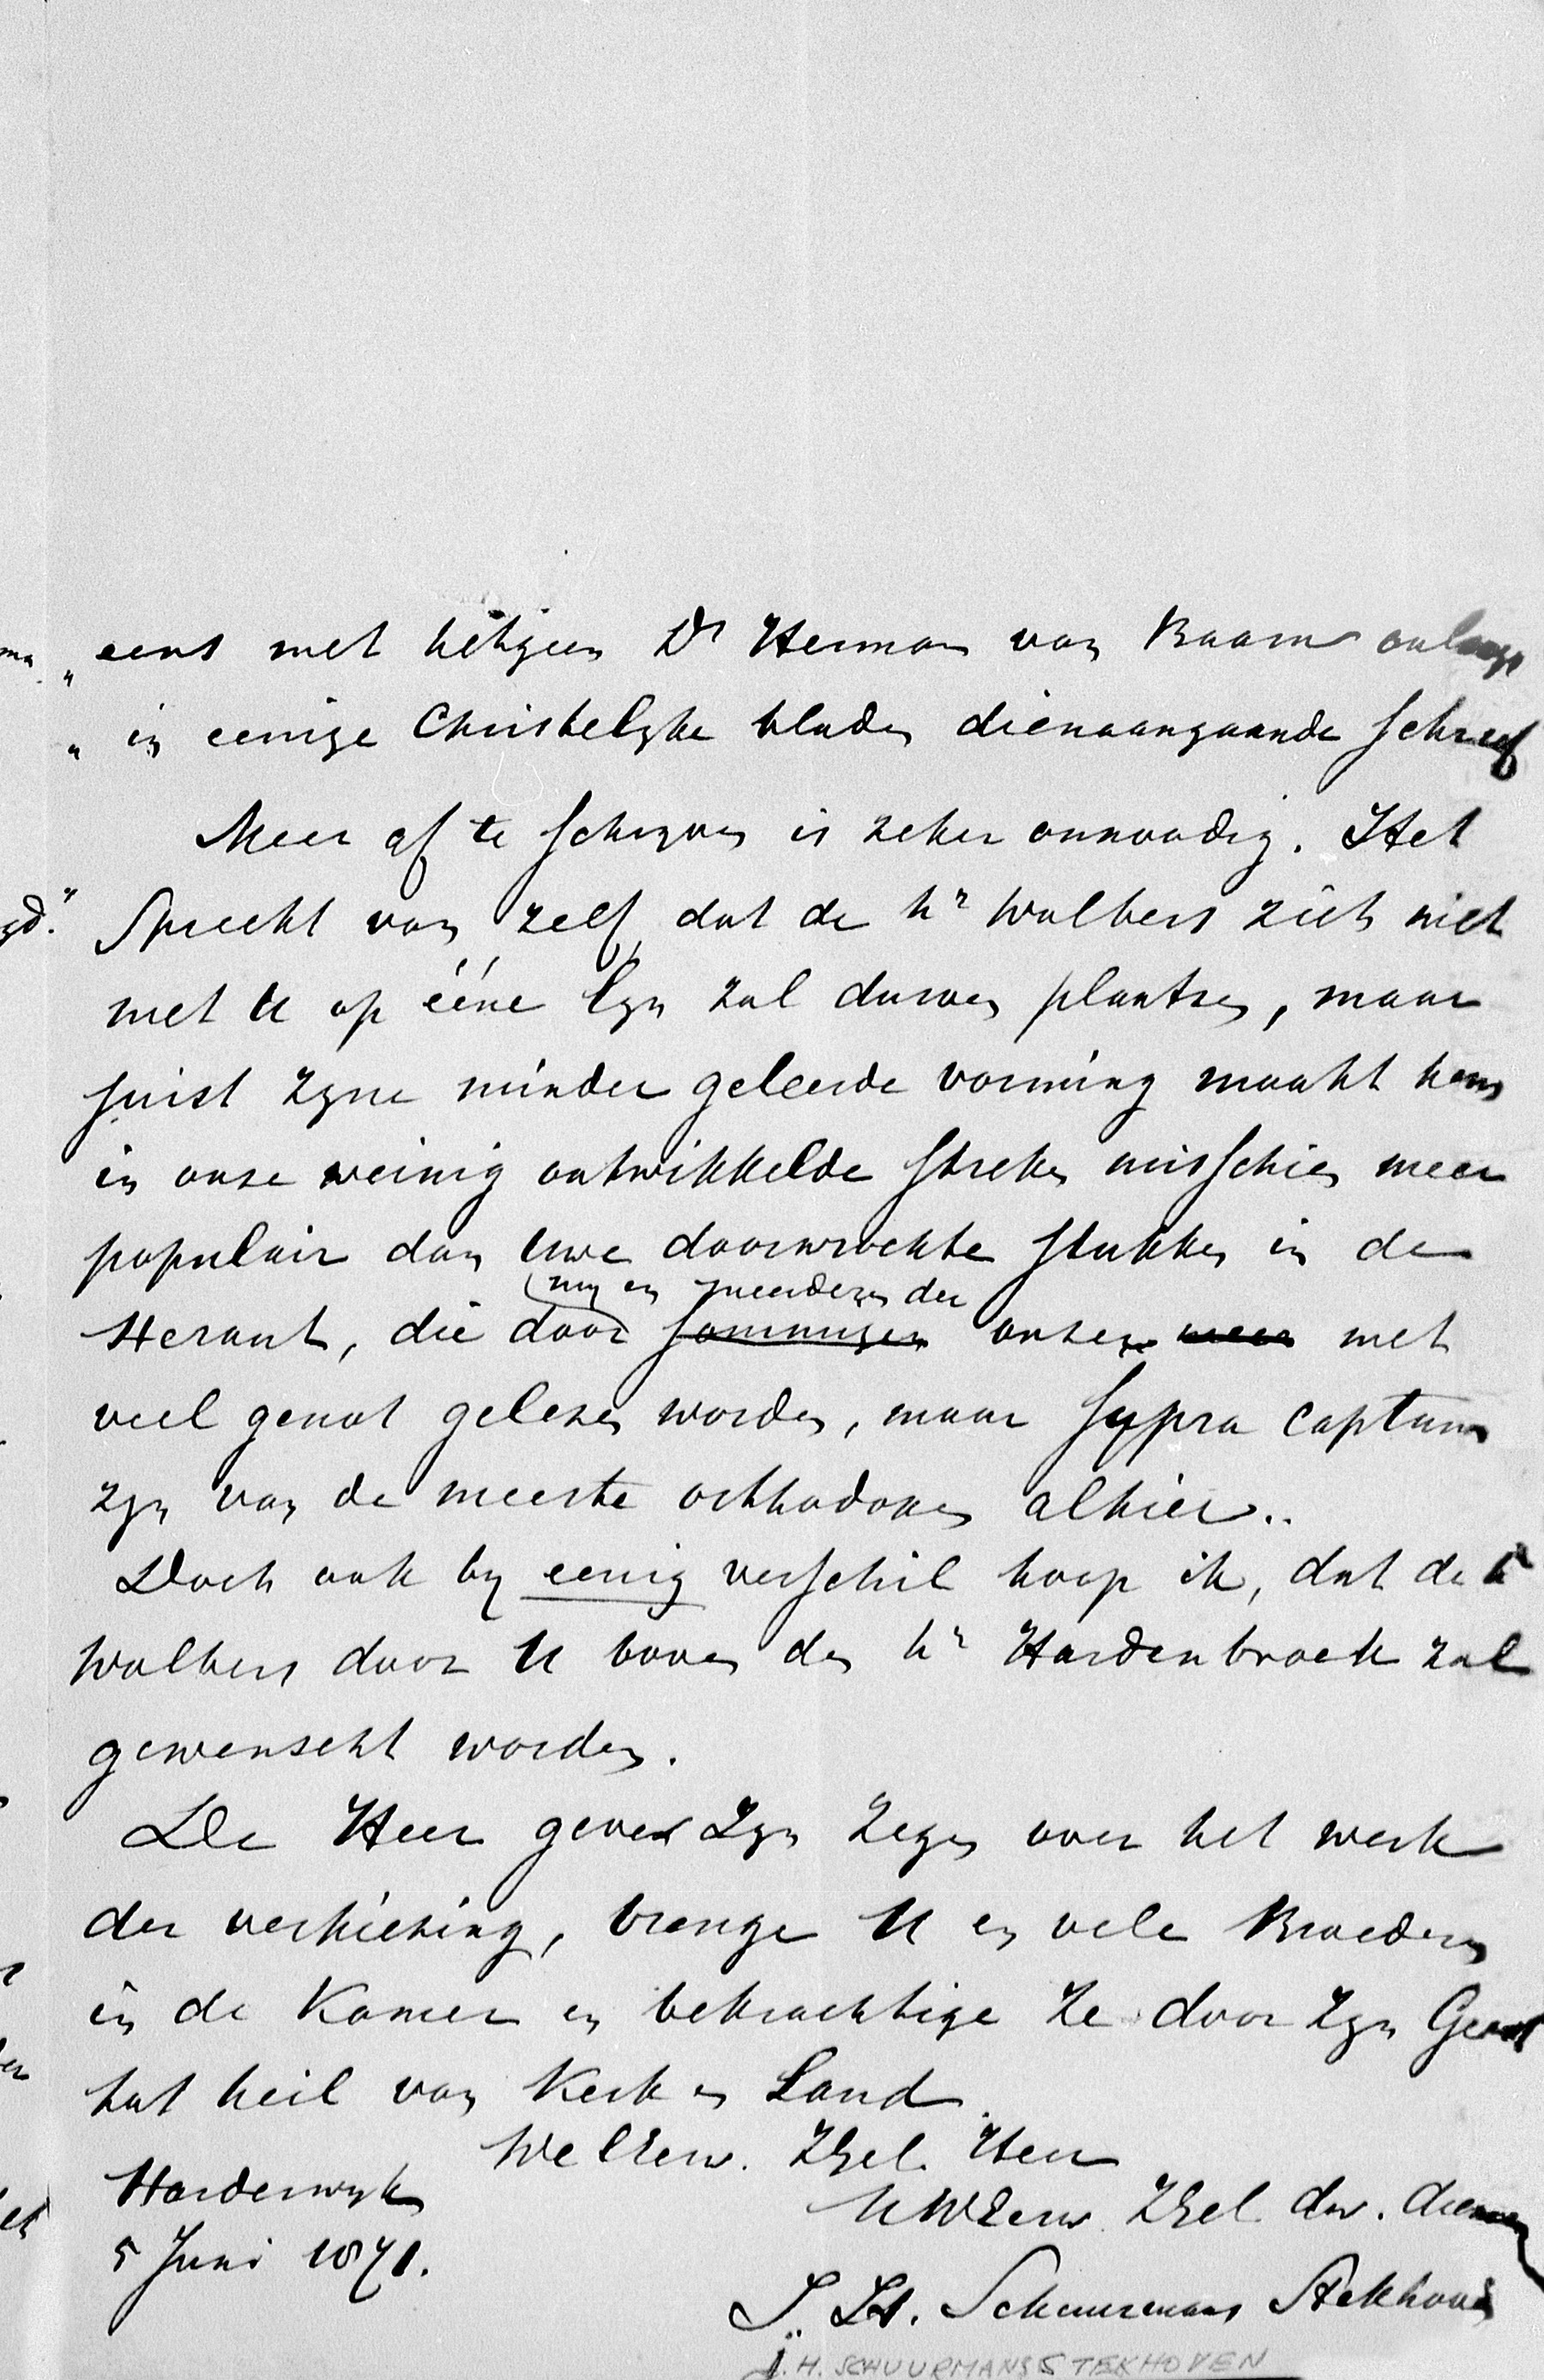 „ eens met hetgeen Dr Herman van Baarn onlangs
„ in eenige Christelyke bladen dienaangaande schreef
Meer af te schryven is zeker onnoodig. Het
Spreekt van zelf, dat de hr Wolbers zich niet
met U op ééne lyn zal durven plaatsen, maar
juist zyne minder geleerde vorming maakt hem
in onze weinig ontwikkelde streken misschien meer
populair dan Uwe doorwrochte stukken in de
my en meerderen der
Heraut, die door sommigen onzer meer met
veel genot gelezen worden, maar supra captum
zyn van de meeste orthodoxen alhier..
Doch ook by eenig verschil hoop ik, dat de hr
Wolbers door U boven den hr Hardenbroek zal
gewenscht worden.
De Heer geve Zyn Zegen over het werk
der verkiezing, brenge U en vele Broeders
in de Kamer en bekrachtige ze door Zyn Geest
tot heil van Kerk en Land.
WelEerw. ZGel. Heer
UWEerw. ZGel. dw. dienaar
Harderwyk
5 Juni 1871.
J. H. Schuurmans Stekhoven
J. H. SCHUURMANS STEKHOVEN